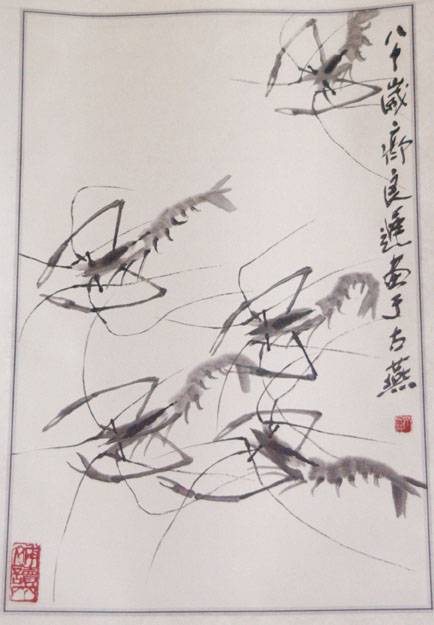 八十歲齊良遲畫于古燕